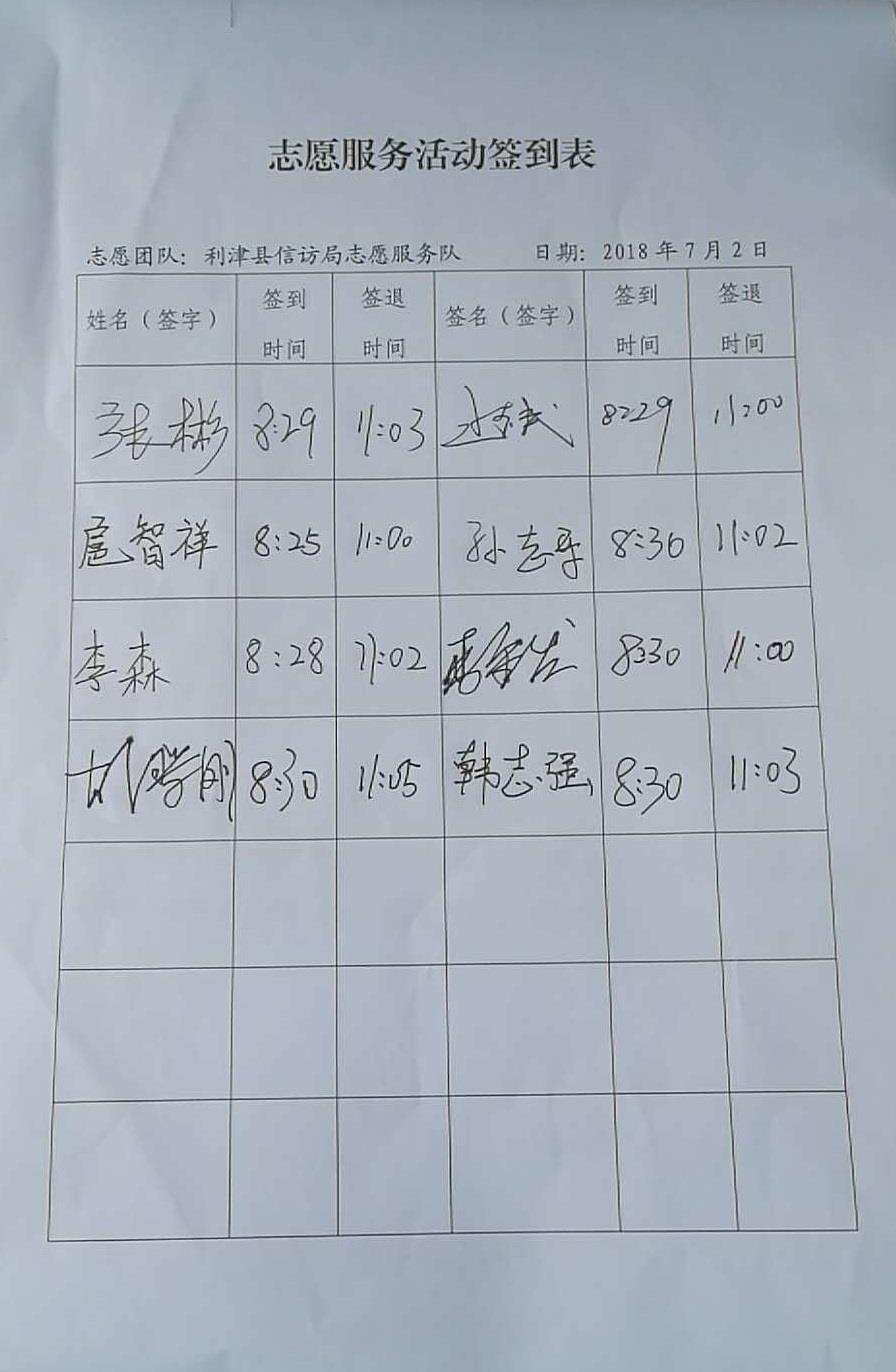 志愿服务活动签到表
志愿团队：利津县信访局志愿服务队 日期：2018年7月2日
姓名（签字） 签到时间 签退时间 签名（签字） 签到时间 签退时间
张彬 8:29 11:03 8:29 11:00
扈智祥 8:25 11:00 孙志平 8:30 11:02
李森 8:28 11:02 8:30 11:00
胡学刚 8:30 11:05 韩志强 8:30 11:03